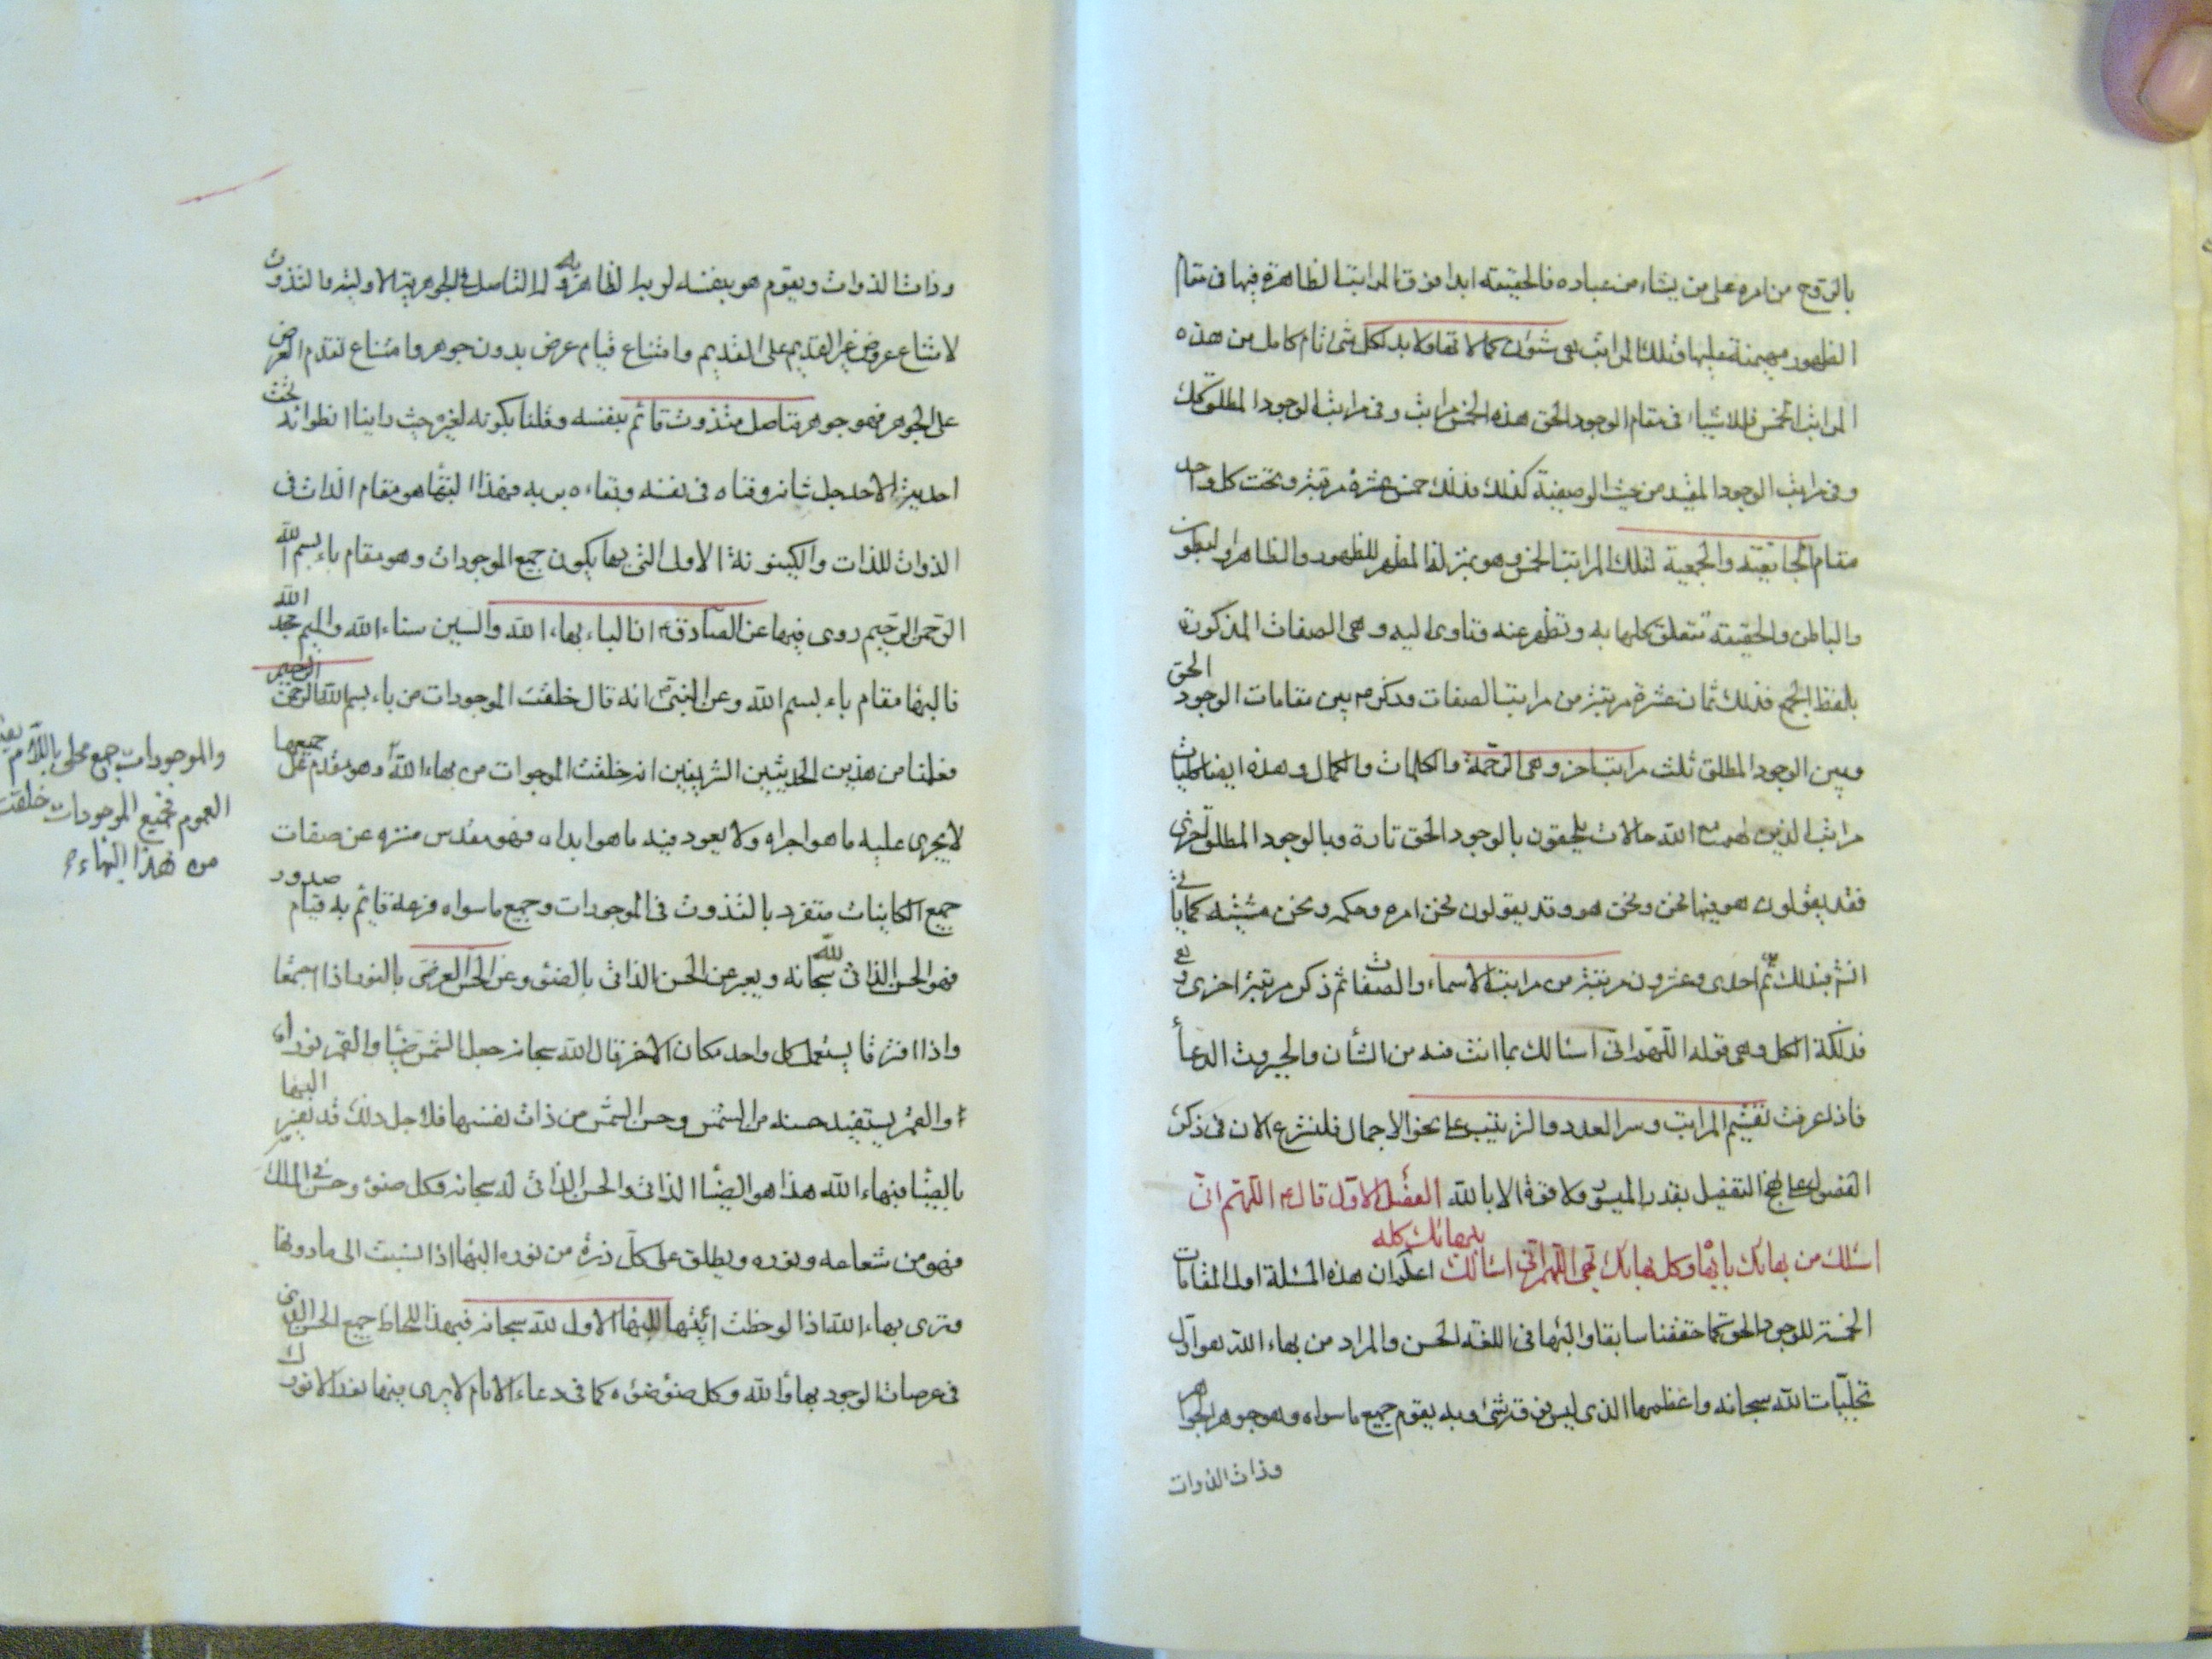 بالروح من امره على من يشاء من عباده فالحقيقة ابدا فوق المراتب الظاهرة فيها فى مقام
الظهور مهيمنة عليها فتلك المراتب هى شئون كمالاتها ولا بد لكل شئ تام كامل من هذه
المراتب الخمس فللاشياء فى مقام الوجود الحق هذه الخمس مراتب وفى مراتب الوجود المطلق كك
وفى مراتب الوجود المقيد من حيث الوصفية كذلك فذلك خمس عشرة مرتبة وتحت كل واحد
مقام الجامعية والجمعية لتلك المراتب الخمس وهو بمنزلة المظهر للظهور والظاهر والبطون
والباطن والحقيقة تتعلق كلها به وتظهر عنه وتاوى اليه وهى الصفات المذكورة
بلفظ الجمع فذلك ثمان عشرة مرتبة من مراتب الصفات وذكرم بين مقامات الوجود الحق
وبين الوجود المطلق ثلث مراتب اخر وهى الرحمة والكلمات والكمال وهذه ايضا كليات
مراتب الذين لهم مع الله حالات يلحقون بالوجود الحق تارة وبالوجود المطلق اخرى
فقد يقولون هو فيها نحن ونحن هو وقد يقولون نحن امره وحكمه ونحن مشيته كما ياتى
انش فبذلك تم احدى وعشرون مرتبة من مراتب الاسماء والصفات ثم ذكر مرتبة اخرى
فذلكة الكل وهى قوله اللهم انى اسئلك بما انت فيه من الشأن والجبروت الدعأ
فاذا عرفت تقسيم المراتب وسر العدد والترتيب على نحو الاجمال فلنشرع الان فى ذكر
الفصول على نهج التفصيل بقدر الميسور ولا قوة الا بالله الفصل الاول قال ع اللهم انى
اسئلك من بهائك بابهاه وكل بهائك بهى اللهم انى اسئلك ببهائك كله اعلم ان هذه المسئلة اول المقامات
الخمسة للوجود الحق كما حققنا سابقا والبهاء فى اللغة الحسن والمراد من بهاء الله هو اول
تجليات الله سبحانه واعظمها الذى ليس فوقه شئ وبه يقوم جميع ما سواه وهو جوهر الجواهر
وذات الذوات
وذات الذوات ويقوم هو بنفسه لو بدا لظاهره به له التاصل فى الجوهرية الاولية والتذوت
لامتناع عروض غير القديم على القديم وامتناع قيام عرض بدون جوهر وامتناع تقدم العرض
على الجوهر فهو جوهر متاصل متذوت قائم بنفسه وقلنا بكونه لغيره حيث راينا انطوائه تحت
احدية الاحد جل شانه وفناه فى نفسه وبقاءه بربه فهذا البهاء هو مقام الذات فى
الذوات للذات والكينونة الاولى التى بها يكون جميع الموجودات وهو مقام باء بسم الله
الرحمن الرحيم روى فيها عن الصادق ع ان الباء بهاء الله والسين سناء الله والميم مجد الله
فالبهاء مقام باء بسم الله وعن النبى ص انه قال خلقت الموجودات من باء بسم الله الرحمن الرحيم
فعلمنا من هذين الحديثين الشريفين انه خلقت الموجوات من بهاء الله وهو مقدم على جميعها
لا يجرى عليه ما هو اجراه ولا يعود فيه ما هو ابداه فهو مقدس منزه عن صفات
جميع الكاينات متفرد بالتذوت فى الموجودات وجميع ما سواه فرعه قايم به قيام صدور
فهو الحسن الذاتى لله سبحانه ويعبر عن الحسن الذاتى بالضوء وعن الحسن العرضى بالنور اذا اجتمعا
واذا افترقا يستعمل كل واحد مكان الاخر قال الله سبحانه جعل الشمس ضياء والقمر نورا
والقمر يستفيد حسنه من الشمس وحسن الشمس من ذات نفسها فلاجل ذلك قد يعبر البهاء
بالضياء فبهاء الله هذا هو الضياء الذاتى والحسن الذاتى له سبحانه وكل ضوء وحسن فى الملك
فهو من شعاعه ونوره ويطلق على كل ذرة من نوره البهاء اذا نسبت الى ما دونها
وترى بهاء الله اذا لوحظت ايتها للبهاء الاول لله سبحانه فبهذا اللحاظ جميع الحسن الذى
فى عرصات الوجود بهاؤ الله وكل ضوء ضوءه كما فى دعاء الايام لا يرى فيها نور الا نورك
والموجودات جمع محلى باللام يفيد
العموم فجميع الموجودات خلقت
من هذا البهاء